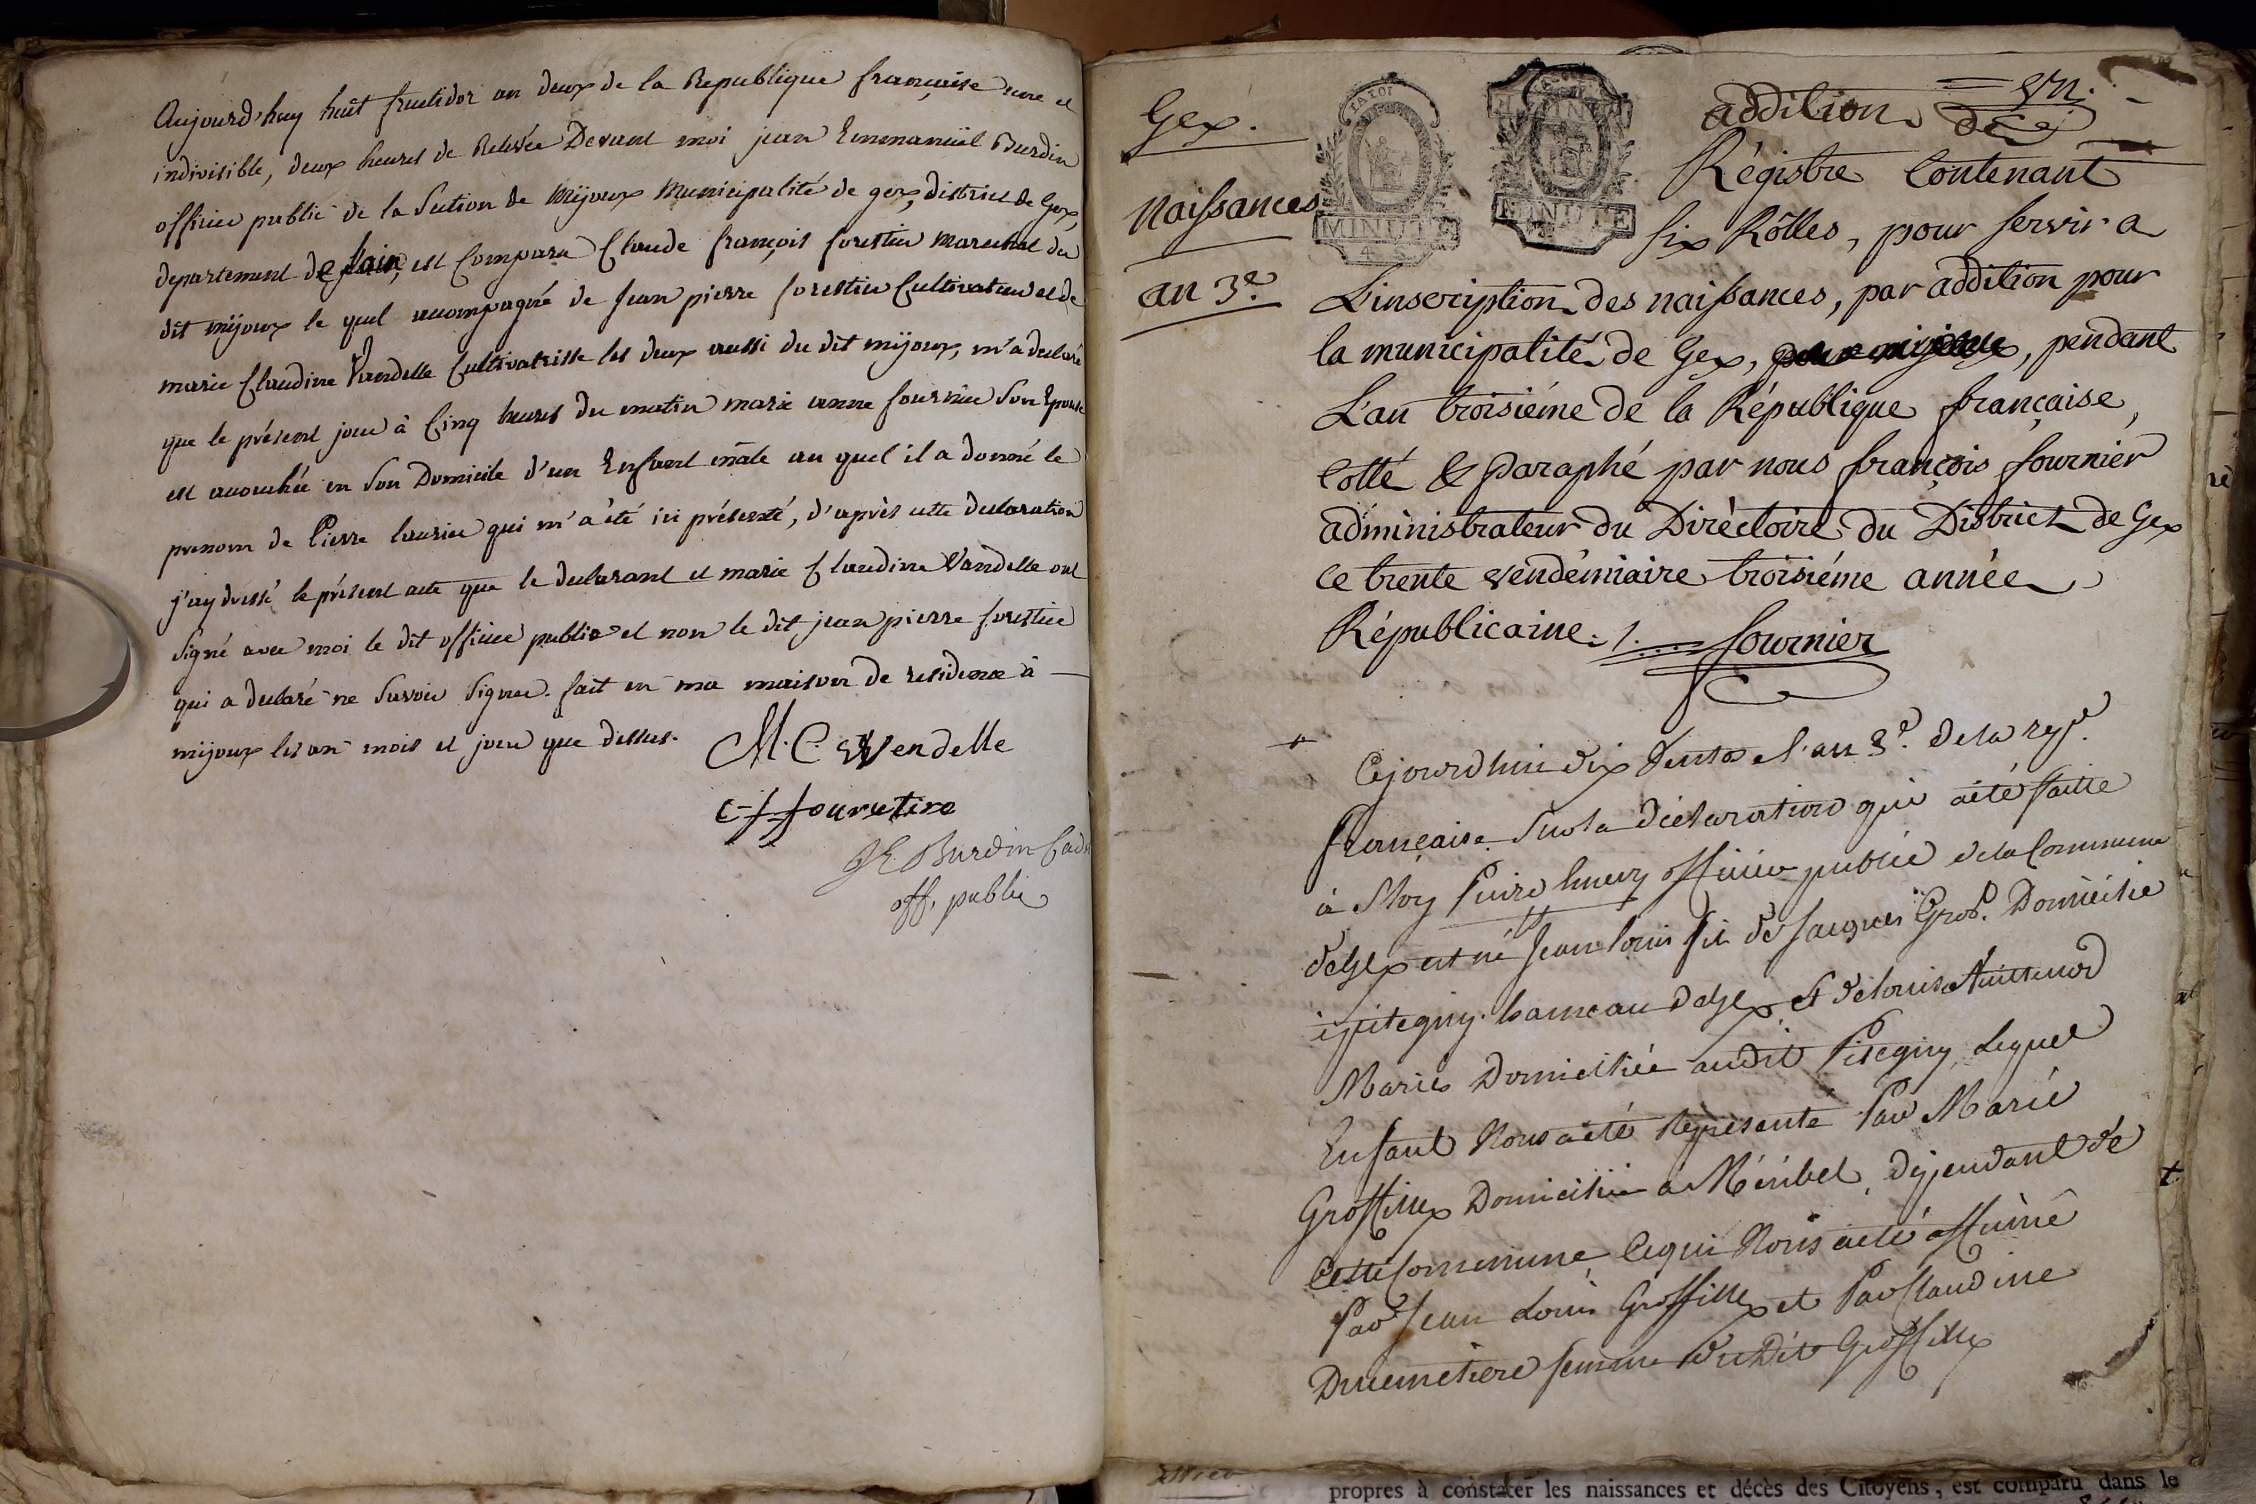 Aujourd'huy huit fructidor an deux de la Republique française une et
indivisible, deux heures de Relevée Devant moi jean Emmanuël Burdin
officier public de la Section de Mijoux Municipalité de gex, district de Gex,
departement de l'ain, est Comparu Claude françois forestier Marechal du
dit mijoux le quel accompagné de Jean pierre forestier Cultivateur et de
marie Claudine Vandelle Cultivatrisse les deux aussi du dit mijoux, m'a declaré
que le présent jour à Cinq heures du matin marie anne fournier Son Epouse
est accouchée en Son Domicile d'un Enfant mâle au quel il a donné le
prenom de Pierre qui m'a été ici présenté, d'après cette declaration
j'ay dressé le présent acte que le declarant et marie Claudine Vandelle ont
Signé avec moi le dit officier public et non le dit jean pierre forestier
qui a declaré ne Savoir Signer. fait en ma maison de residence à
mijoux les an mois et jour que dessus.
M. C. Wendelle
JE Burdin Cad
off. public
Gex.
Naissances
an 3e.
LA LOI
MINUTE
4
MINUTE
addition
Régistre Contenant
six Rôlles, pour servir a
L'inscription des naissances, par addition pour
la municipalité de Gex, pendant
L'an troisiéme de la République française,
Cotté & Paraphé par nous françois fournier
administrateur du Diréctoire du District de Gex
ce trente vendémiaire troisiéme année
Républicaine. /. fournier
Cejourdhui dix l'an 3e. de la rep.e
française Sur la Déclaration qui a été faitte
à Moy officier public de la Commune
de Gex est né Jean louis fils de Jacques Gros. Domicilié
hameau de Gex et de louise
Mariés Domiciliée audit Pitegny, Lequel
Enfant Nous a été Représenté Par Marie
Grossillex Domiciliée a Méribel, dépendant de
Cette Commune, Ce qui Nous a été affirmé
Par Jean Louis Grossillex et Par Claudine
Ducimetiere femme du Dit Grossillex
propres à constater les naissances et décès des Citoyens, est comparu dans le